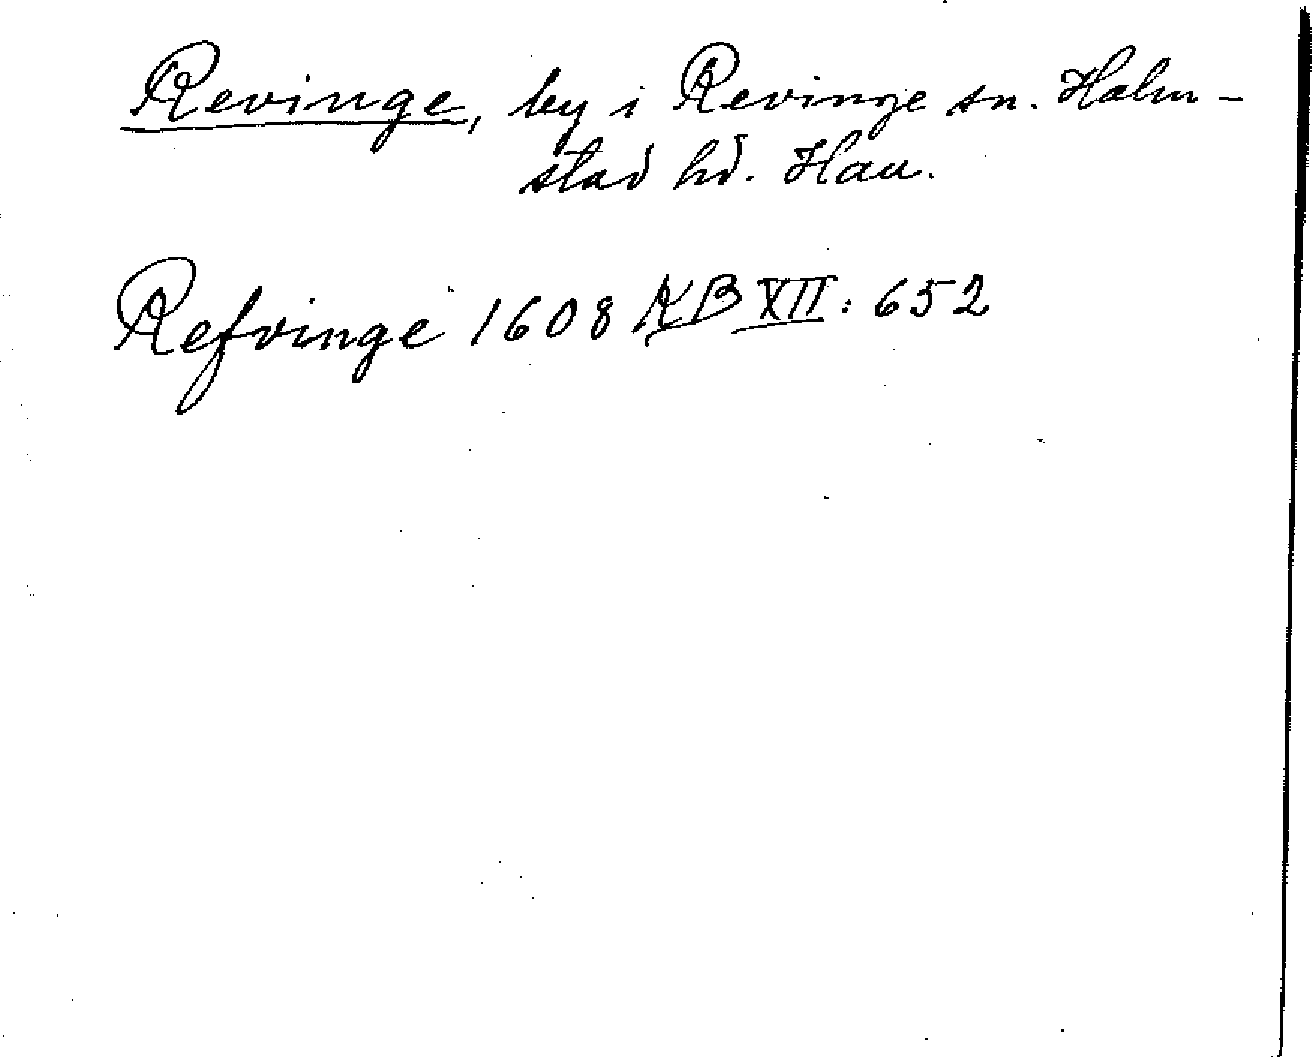 Revinge, by i Revinge sn. Halm-
stad hd. Hall.
Refvinge 1608 KB XII: 652